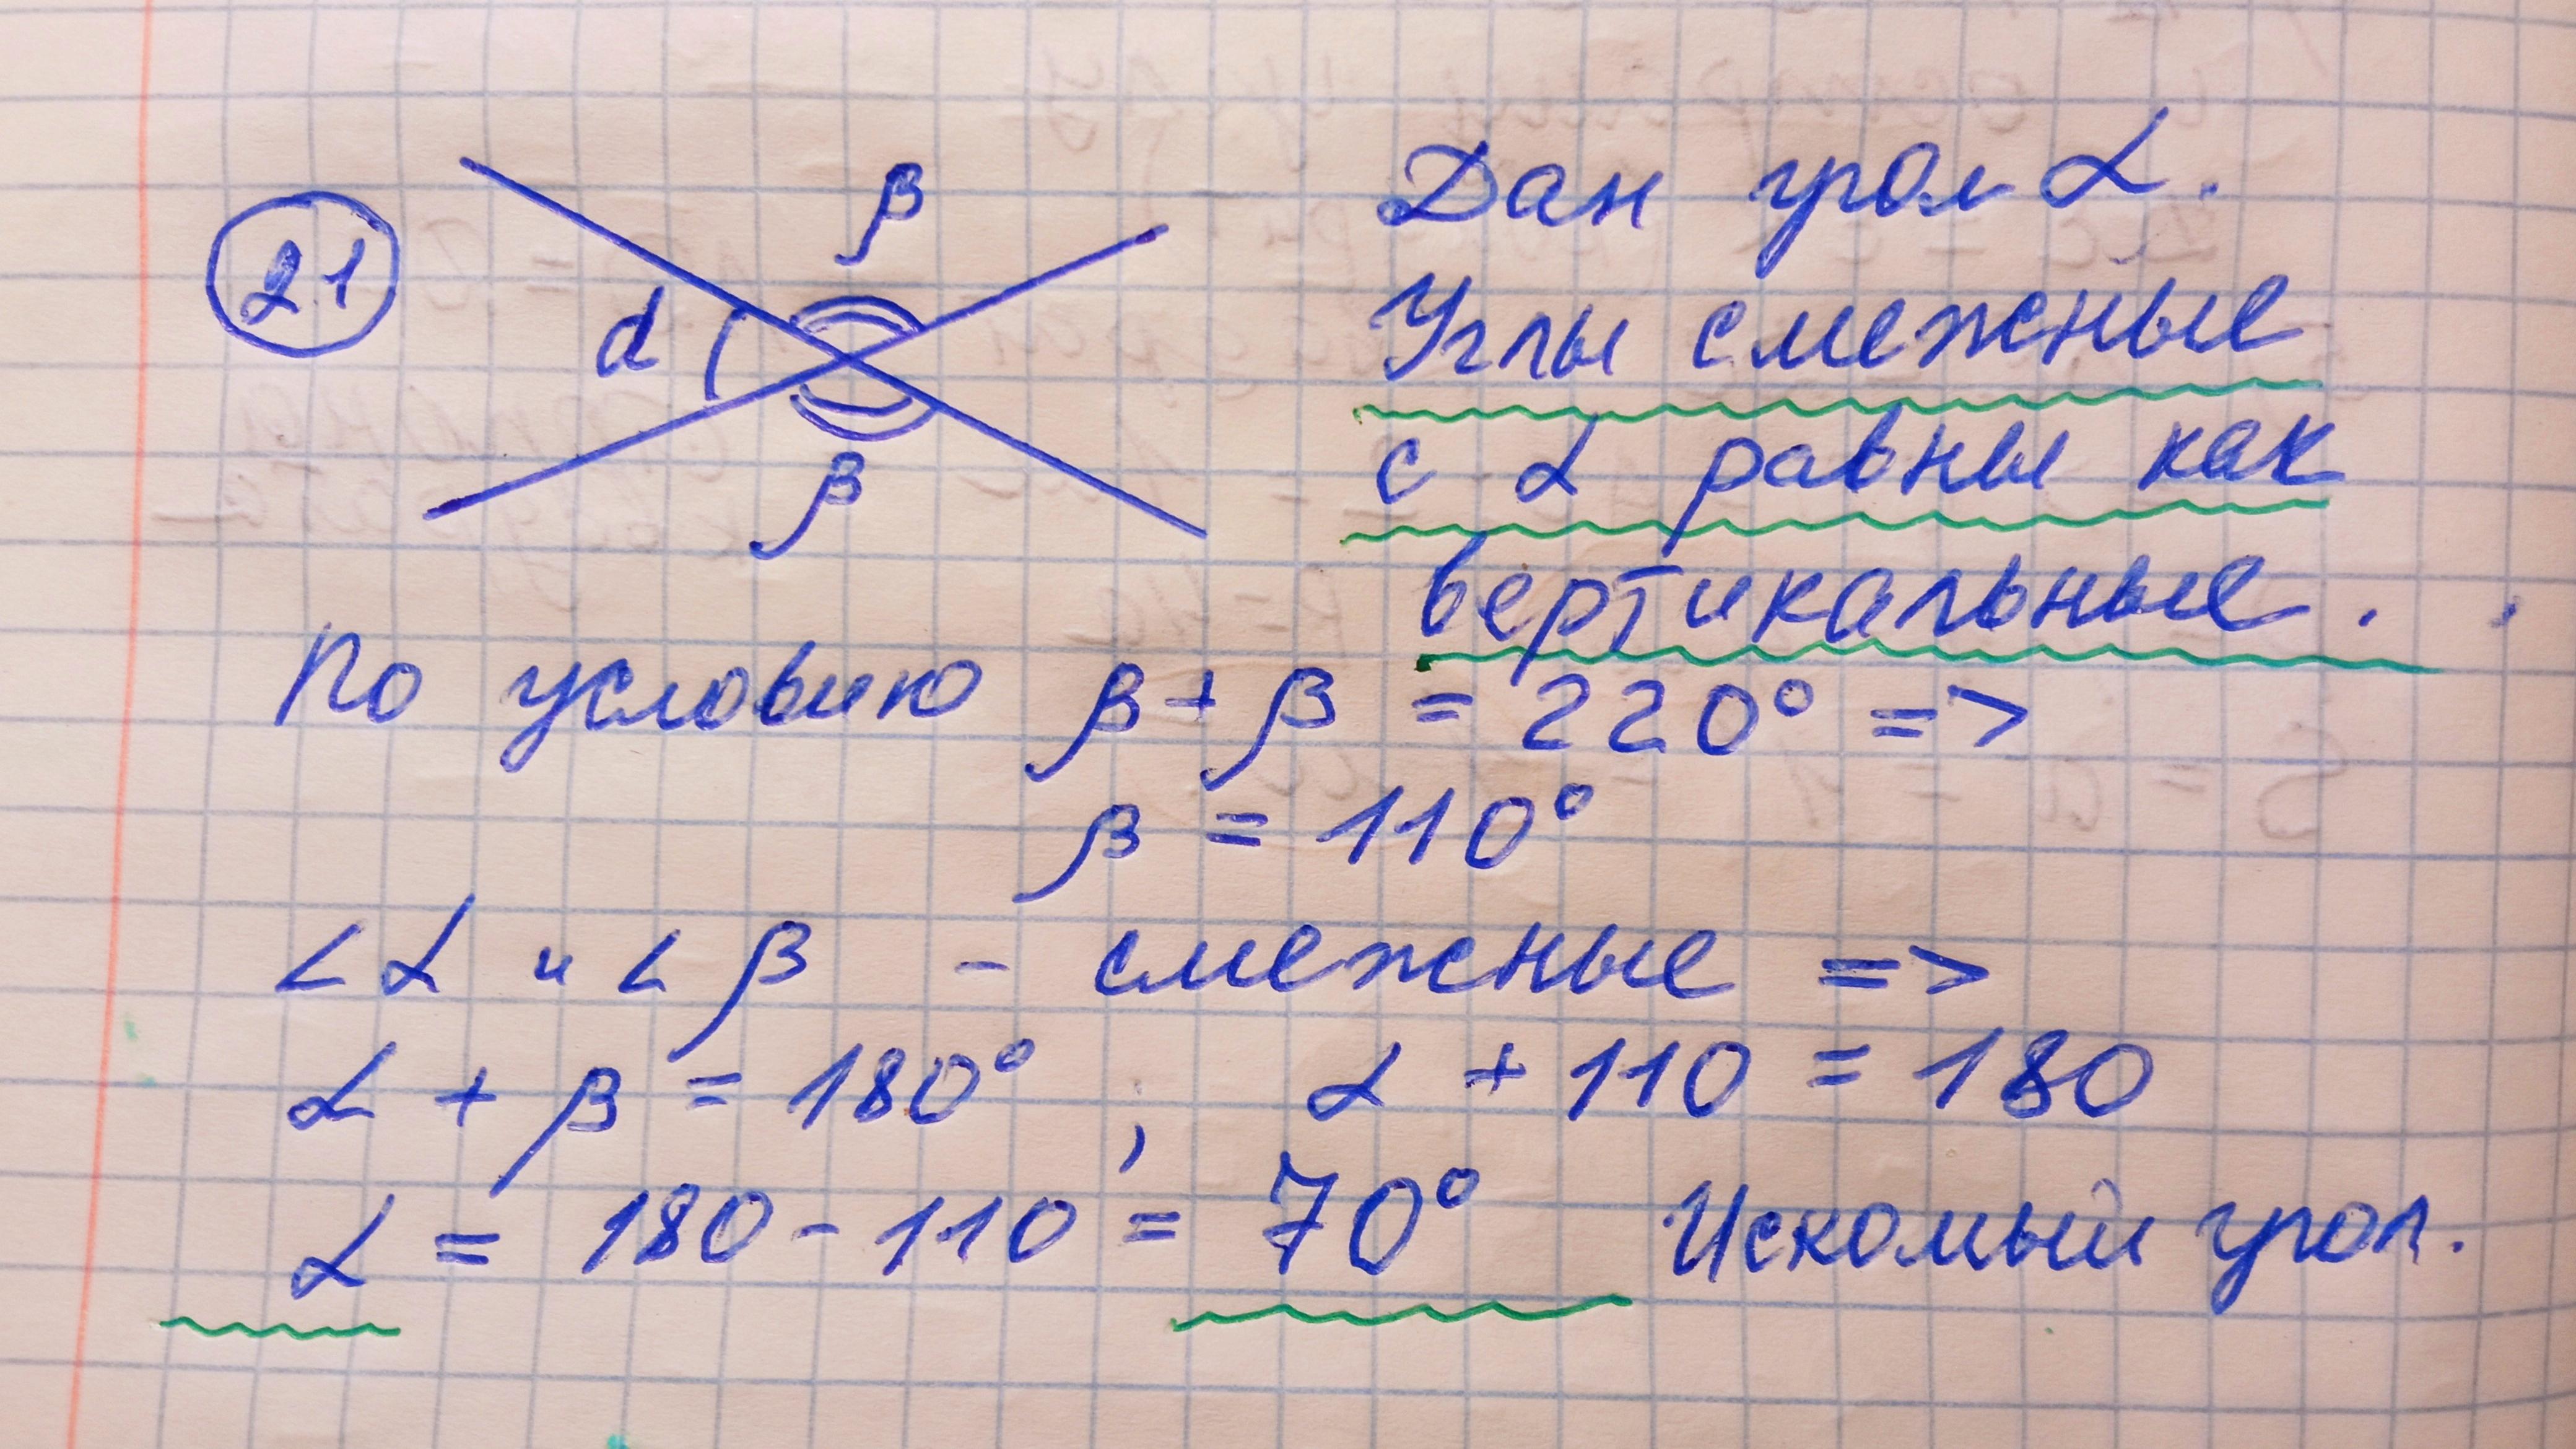 21
β
Дан угол α.
α
Углы смежные
с α равны как
β
вертикальные.
По условию β + β = 220° =>
β = 110°
∠α и ∠β - смежные =>
α + β = 180° ; α + 110 = 180
α = 180 - 110 = 70° Искомый угол.